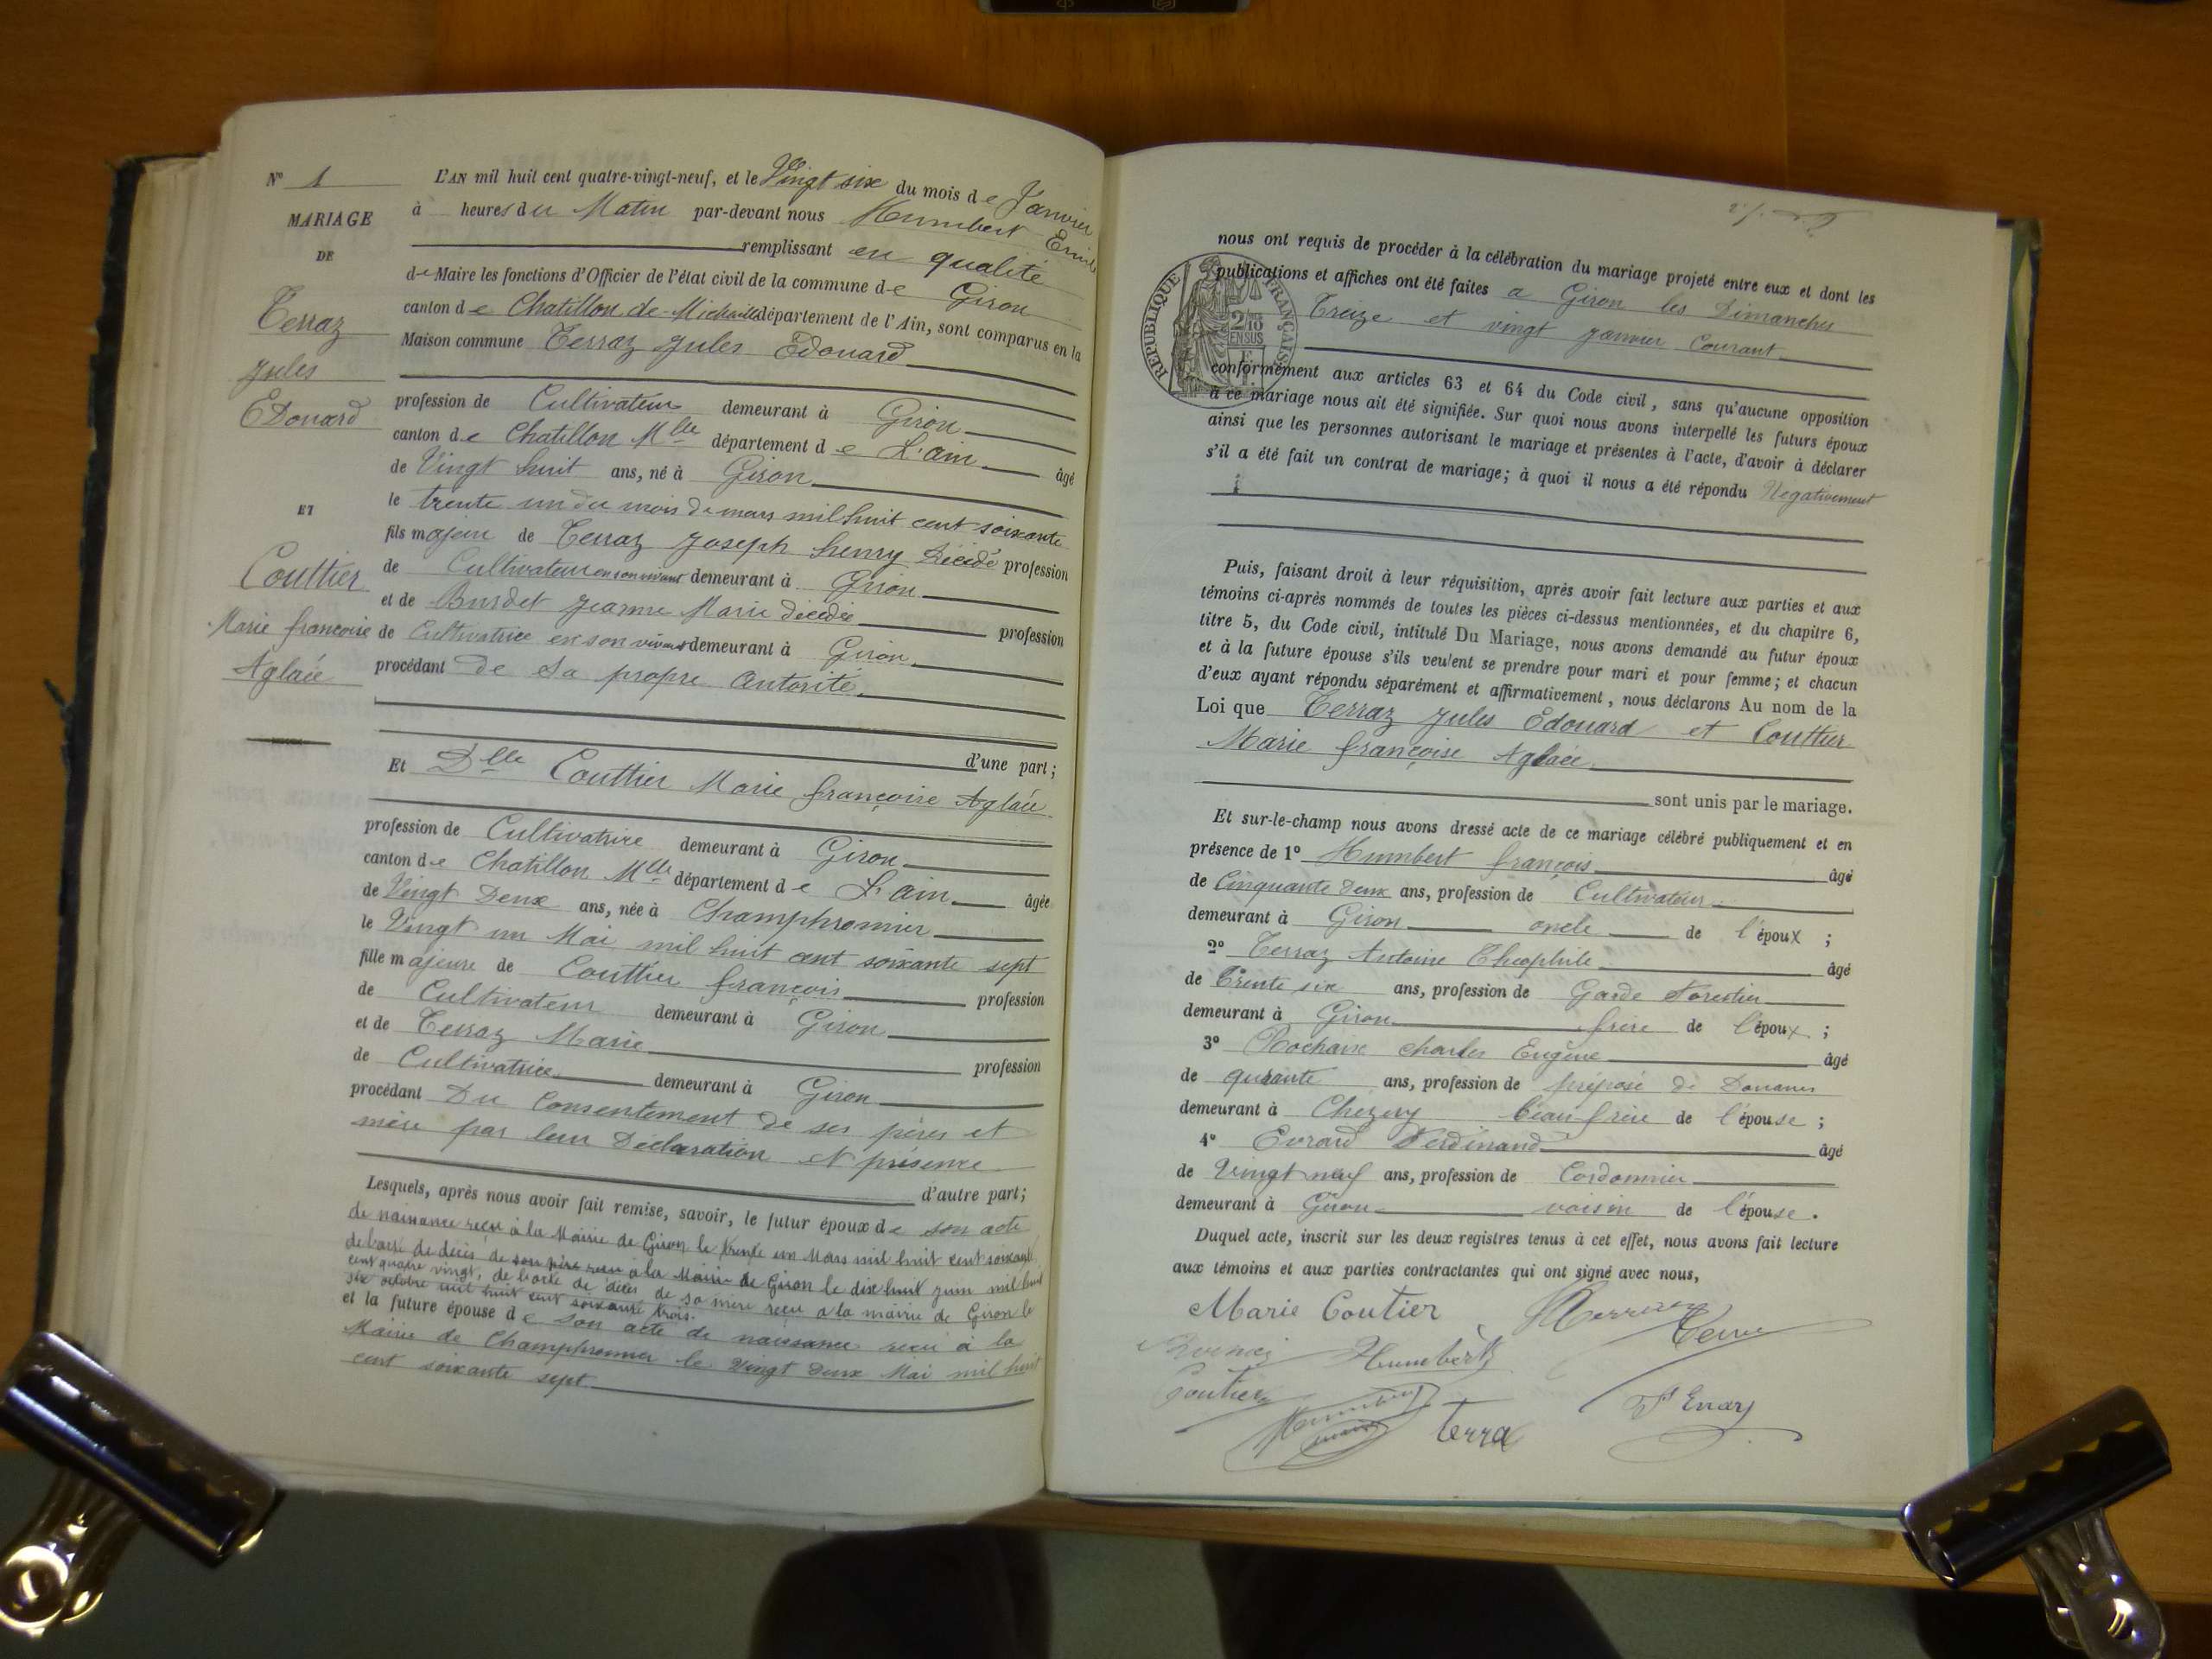 N° 1
MARIAGE
DE
Terraz
Jules
Edouard
ET
Couttier
Marie françoise
Aglaée
L'AN mil huit cent quatre-vingt-neuf, et le Vingt six du mois de Janvier
à heures du Matin par-devant nous Humbert Emile
remplissant en qualité
de Maire les fonctions d'Officier de l'état civil de la commune de Giron
canton de Chatillon de Michaille département de l'Ain, sont comparus en la
Maison commune Terraz Jules Edouard
profession de Cultivateur demeurant à Giron
canton de Chatillon Mlle département de L'ain âgé
de Vingt huit ans, né à Giron
le trente un du mois de mars mil huit cent soixante
fils majeur de Terraz Joseph henry Décédé profession
de Cultivateur en son vivant demeurant à Giron
et de Burdet Jeanne Marie décédée profession
de Cultivatrice en son vivant demeurant à Giron
procédant de Sa propre Autorité
d'une part;
Et Dlle Couttier Marie françoise Aglaée
profession de Cultivatrice demeurant à Giron
canton de Chatillon Mlle département de L'ain âgée
de Vingt Deux ans, née à Champfromier
le Vingt un Mai mil huit cent soixante sept
fille majeure de Couttier françois profession
de Cultivateur demeurant à Giron
et de Terraz Marie profession
de Cultivatrice demeurant à Giron
procédant Du Consentement de ses pères et
mère par leur Déclaration et présence
d'autre part;
Lesquels, après nous avoir fait remise, savoir, le futur époux de son acte
de naissance reçu à la Mairie de Giron le trente un Mars mil huit cent soixante
de l'acte de décès de son père reçu a la Mairie de Giron le dix huit juin mil huit
cent quatre vingt, de l'acte de décès de sa mère reçu a la mairie de Giron le
six octobre mil huit cent soixante trois
et la future épouse de son acte de naissance reçu à la
Mairie de Champfromier le vingt Deux Mai mil huit
cent soixante sept
nous ont requis de procéder à la célébration du mariage projeté entre eux et dont les
publications et affiches ont été faites a Giron les Dimanches
Treize et vingt Janvier Courant
RÉPUBLIQUE FRANÇAISE
2/10 EN SUS
conformément aux articles 63 et 64 du Code civil, sans qu'aucune opposition
à ce mariage nous ait été signifiée. Sur quoi nous avons interpellé les futurs époux
ainsi que les personnes autorisant le mariage et présentes à l'acte, d'avoir à déclarer
s'il a été fait un contrat de mariage; à quoi il nous a été répondu Négativement
Puis, faisant droit à leur réquisition, après avoir fait lecture aux parties et aux
témoins ci-après nommés de toutes les pièces ci-dessus mentionnées, et du chapitre 6,
titre 5, du Code civil, intitulé Du Mariage, nous avons demandé au futur époux
et à la future épouse s'ils veulent se prendre pour mari et pour femme; et chacun
d'eux ayant répondu séparément et affirmativement, nous déclarons Au nom de la
Loi que Terraz Jules Edouard et Couttier
Marie françoise Aglaée
sont unis par le mariage.
Et sur-le-champ nous avons dressé acte de ce mariage célébré publiquement et en
présence de 1° Humbert françois âgé
de Cinquante Deux ans, profession de Cultivateur
demeurant à Giron oncle de l'époux ;
2° Terraz Antoine Théophile âgé
de Trente six ans, profession de Garde Forestier
demeurant à Giron frère de l'époux ;
3° Rochaix Charles Eugène âgé
de quarante ans, profession de préposé de Douanes
demeurant à Chezery beau frère de l'épouse ;
4° Evrard Ferdinand âgé
de Vingt neuf ans, profession de Cordonnier
demeurant à Giron voisin de l'épouse.
Duquel acte, inscrit sur les deux registres tenus à cet effet, nous avons fait lecture
aux témoins et aux parties contractantes qui ont signé avec nous,
Marie Coutier
Humbert
Coutier
terra